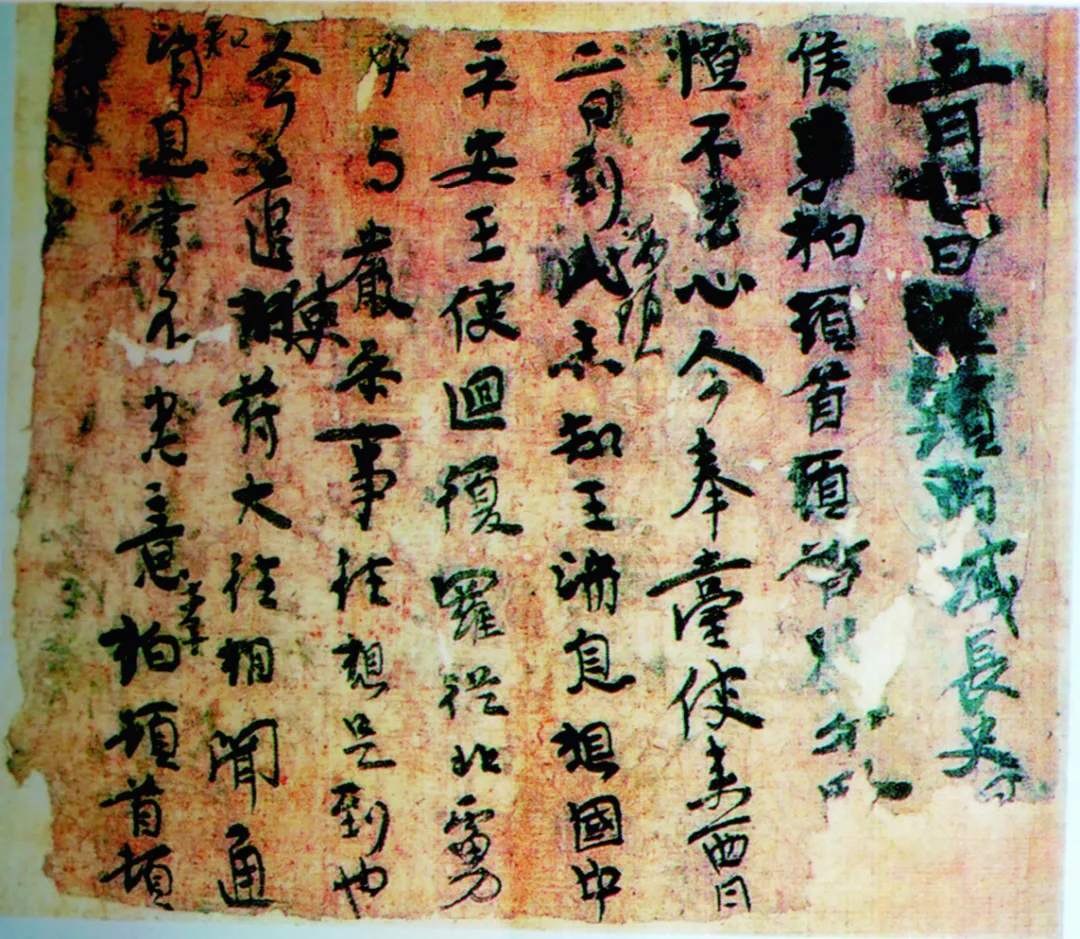 五月七日海頭西域長史
侯李柏頓首頓首
恒不去心今奉臺使來西月
二日到此海頭未知王消息想國中
平安王使迴復羅從北虜
中与嚴參事往想是到也
今遣使苻大往相聞通
知消息書不悉意李柏頓首頓